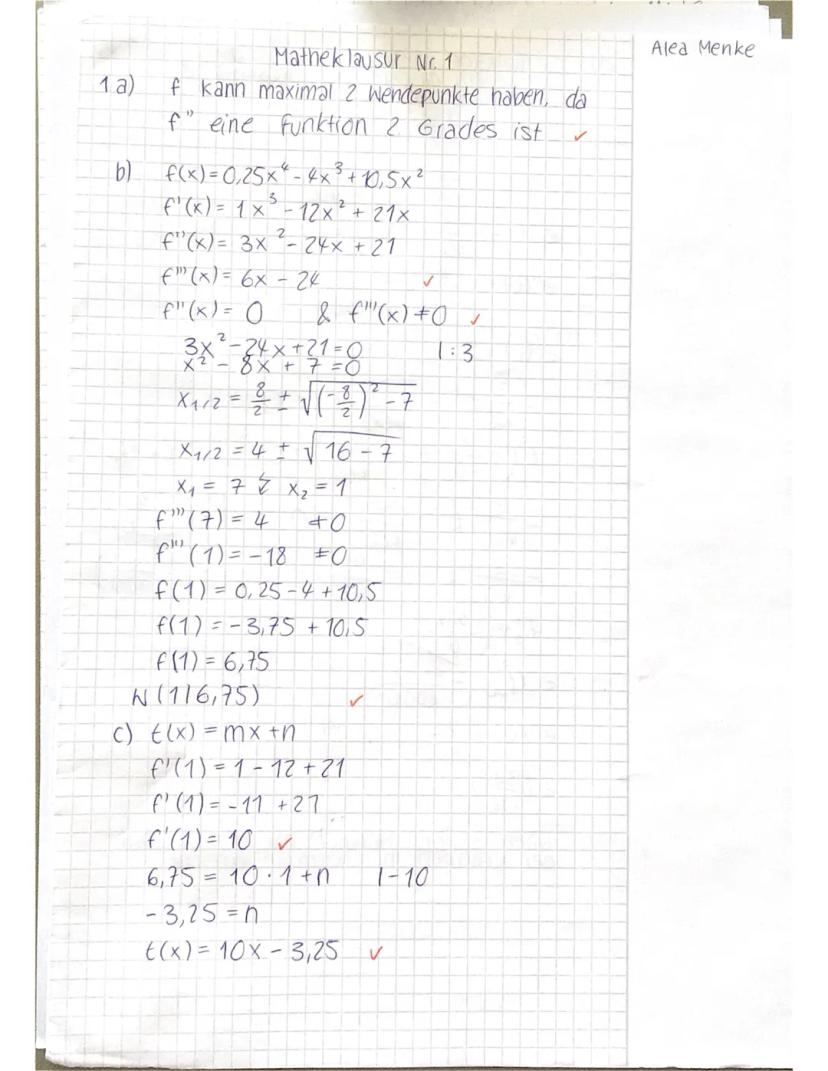 Matheklausur Nr. 1
Alea Menke
1a) f kann maximal 2 Wendepunkte haben, da
f'' eine Funktion 2 Grades ist ✓
b) f(x)=0,25x⁴-4x³+10,5x²
f'(x)= 1x³-12x²+21x
f''(x)= 3x²-24x+21
f'''(x)= 6x-24 ✓
f''(x)= 0 & f'''(x)≠0 ✓
3x²-24x+21=0 |:3
x²-8x+7=0
x₁/₂ = 8/2 ± √((-8/2)²-7)
x₁/₂ = 4 ± √(16-7)
x₁ = 7 ↯ x₂ = 1
f'''(7) = 4 ≠0
f'''(1) = -18 ≠0
f(1) = 0,25-4+10,5
f(1) = -3,75+10,5
f(1) = 6,75
W(1|6,75) ✓
c) t(x) = mx+n
f'(1) = 1-12+21
f'(1) = -11+21
f'(1) = 10 ✓
6,75 = 10·1+n |-10
-3,25 = n
t(x) = 10x-3,25 ✓